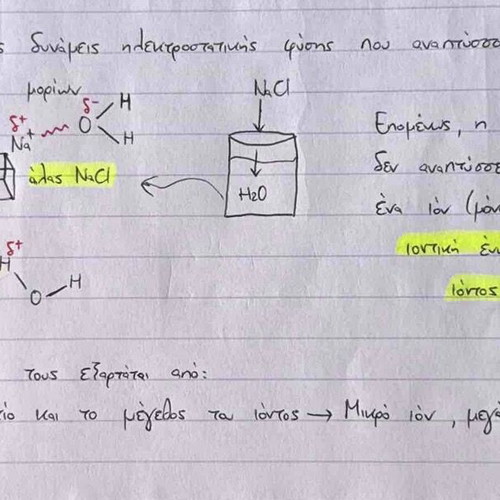 ς δυνάμεις ηλεκτροστατικής φύσης που αναπτύσσο
μορίων
δ-
H
δ+
Na+
O
H
άλας NaCl
NaCl
H2O
Επομένως, η
δεν αναπτύσσε
ένα ιόν (μόν
ιοντική έν
ιόντος
δ+
H
H
O
τους εξαρτάται από:
ίο και το μέγεθος του ιόντος → Μικρό ιόν, μεγά